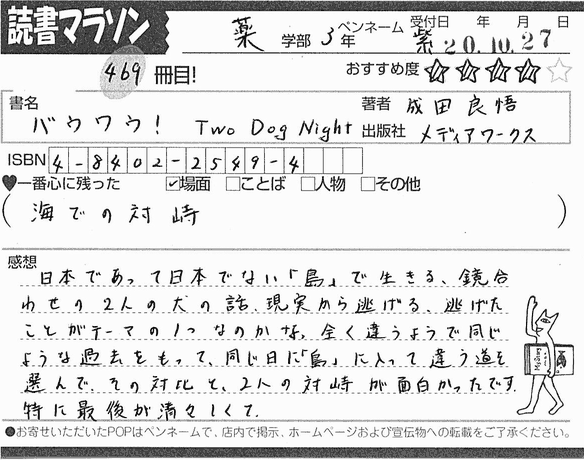 読書マラソン
薬 学部 3年 ペンネーム 紫 受付日 年 月 日 20.10.27
469 冊目! おすすめ度 ★★★★☆
書名 バウワウ! Two Dog Night
著者 成田良悟
出版社 メディアワークス
ISBN 4-8402-2549-4
♥一番心に残った ☑場面 □ことば □人物 □その他
(海での対峙)
感想
日本であって日本でない「島」で生きる、鏡合
わせの2人の犬の話、現実から逃げる、逃げた
ことがテーマの1つなのかな。全く違うようで同じ
ような過去をもって、同じ日に「島」に入って違う道を
選んで。その対比と、2人の対峙が面白かったです。
特に最後が清々しくて。
●お寄せいただいたPOPはペンネームで、店内で掲示、ホームページおよび宣伝物への転載をご了承ください。